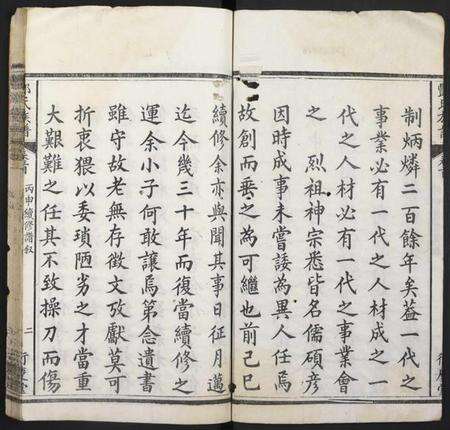 制炳燐二百餘年矣蓋一代之
事業必有一代之人材成之一
代之人材必有一代之事業會
之 烈祖神宗悉皆名儒碩彦
因時成事未嘗諉為異人任焉
故創而垂之為可繼也前己巳
續修余亦與聞其事日征月邁
迄今幾三十年而復當續修之
運余小子何敢讓焉第念遺書
雖守故老無存徴文攷獻莫可
折衷猥以委瑣陋劣之才當重
大艱難之任其不致操刀而傷
丙申續修譜敘
二